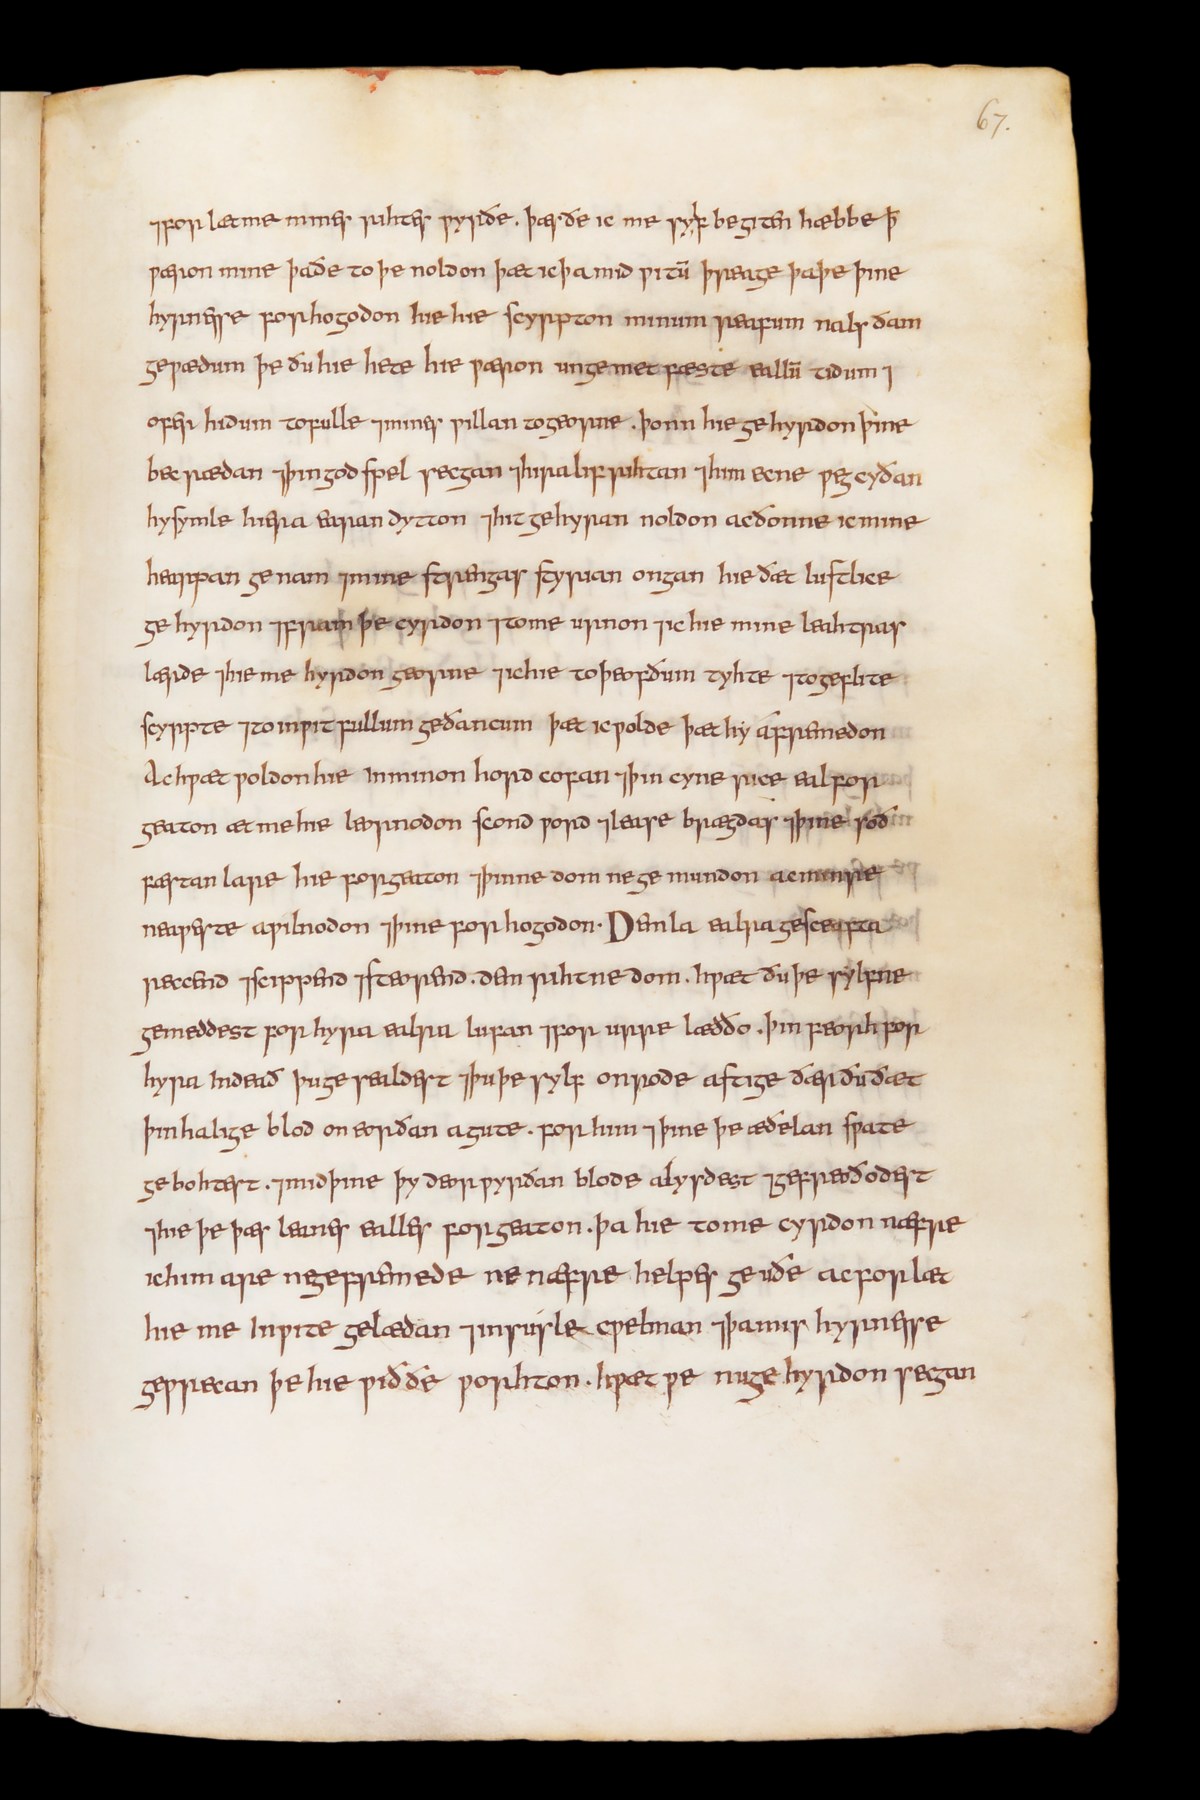 67.
⁊ forlæt me mines rihtes wyrðe. þæs ðe ic me sylf begiten hæbbe þ̄
wæron mine þa ðe to þe noldon þæt ic þa mid witū þreage þa þe þine
hyrnesse forhogodon hie hie scyrpton minum reafum nals ðam
gewædum þe ðu hie hete hie wæron ungemetfæste eallū tidum ⁊
ofer hidum tofulle ⁊ mines willan to georne. þonn hie gehyrdon þine
bec rædan ⁊ þin godspel secgan ⁊ hira lif rihtan ⁊ him ecne weg cyðan
hy symle hiera earan dytton ⁊ hit gehyran noldon ac ðonne ic mine
hearpan genam ⁊ mine strengas styrian ongan hie ðæt luftlice
gehyrdon ⁊ fram þe cyrdon ⁊ to me urnon ⁊ ic hie mine leahtras
lærde ⁊ hie me hyrdon georne ⁊ ic hie to þeofðum tyhte ⁊ to geflite
scyrpte ⁊ to inwitfullum geðancum þæt ic wolde þæt hy á fremedon
Ac hwæt woldon hie in minon hordcofan ⁊ þin cynerice eal for
geaton æt me hie leornodon scondword ⁊ lease brægdas ⁊ þine soð
fæstan lare hie forgeaton ⁊ þinne dom ne gemundon ac minre
neaweste a wilnodon ⁊ þine forhogodon. Den la ealra gesceafta
reccend ⁊ scippend ⁊ steorend. dem rihtne dom. hwæt ðu þe sylfne
gemeddest for hyra ealra lufan ⁊ for usse læððo. þin feorh for
hyra in deað þu gesealdest ⁊ þu þe sylf on rode astige ðær ðu ðæt
þin halige blod on eorðan agute. for him ⁊ þine þe æðelan spate
gebohtest. ⁊ mid þine þy deorwyrðan blode alysdest ⁊ gefreoðodest
⁊ hie þe þæs leanes ealles forgeaton. þa hie to me cyrdon næfre
ic him are ne gefremede ne næfre helpes geuðe ac forlæt
hie me in wite gelædan ⁊ in súsle cwelman ⁊ þa mis hyrnesse
gewrecan þe hie wið ðe worhton. hwæt we nu gehyrdon secgan